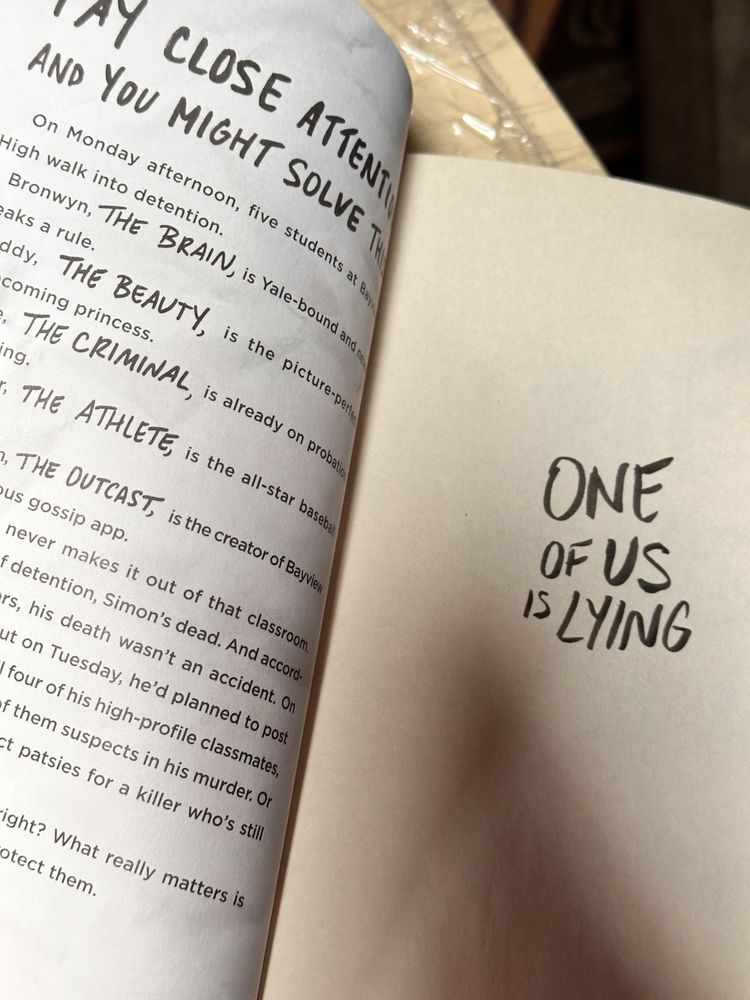 CLOSE ATTENTI
AND YOU MIGHT SOLVE
On Monday afternoon, five students at
High walk into detention.
Bronwyn, THE BRAIN, is Yale-bound and
eaks a rule.
ddy, THE BEAUTY, is the picture-perfect
coming princess.
THE CRIMINAL, is already on probation
ing.
r, THE ATHLETE, is the all-star baseball
n, THE OUTCAST, is the creator of Bayview
ous gossip app.
never makes it out of that classroom.
f detention, Simon's dead. And accord-
rs, his death wasn't an accident. On
ut on Tuesday, he'd planned to post
l four of his high-profile classmates,
of them suspects in his murder. Or
ct patsies for a killer who's still
right? What really matters is
otect them.
ONE
OF US
IS LYING